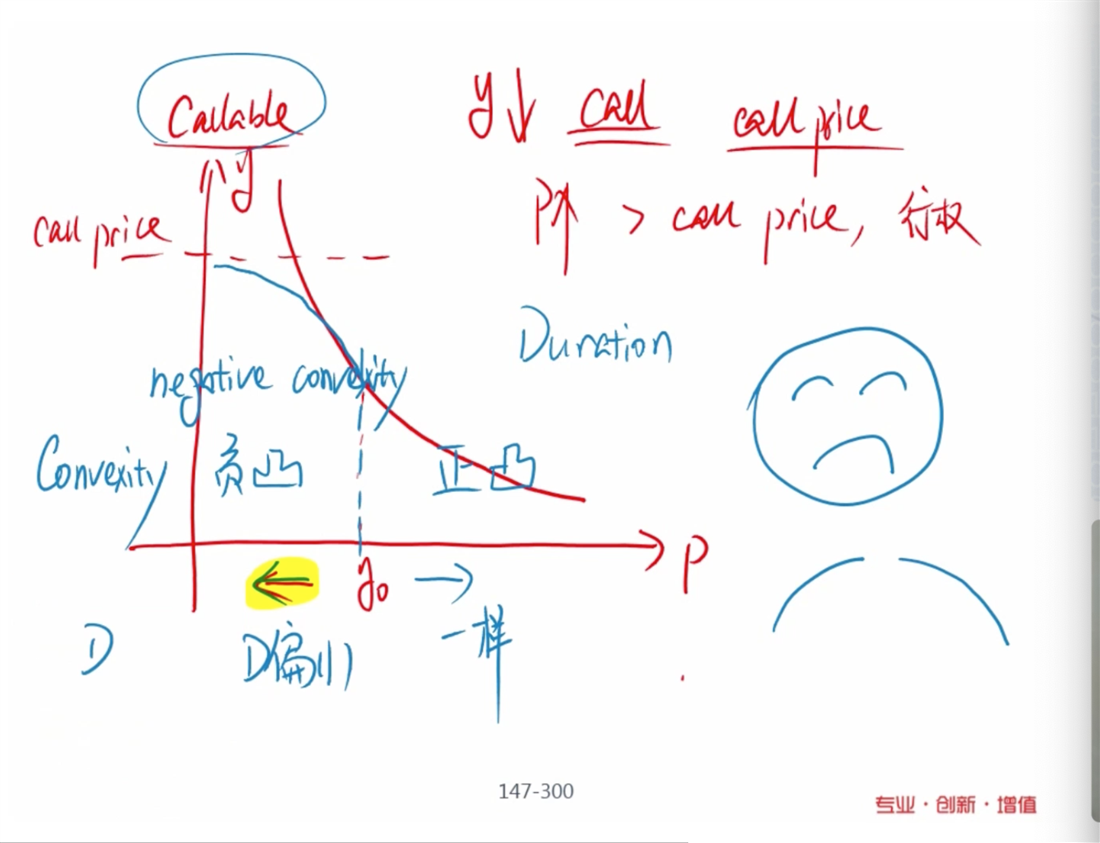 Callable
y↓ call call price
y
P↑ > call price, 行权
call price
Duration
negative convexity
Convexity 负凸 正凸
P
← y₀ →
D D偏小 一样
147-300
专业·创新·增值